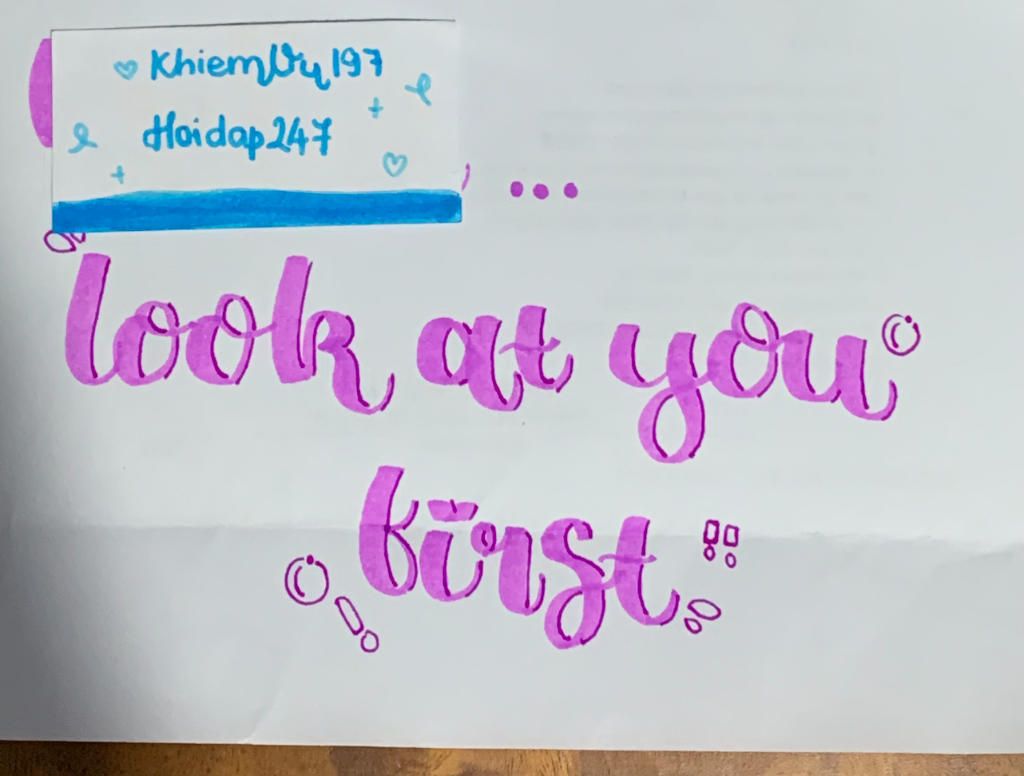 KhiemVy197
Hoidap247
...
look at you
first